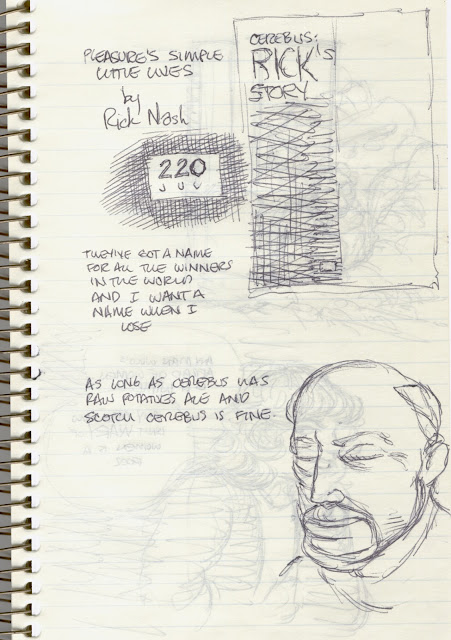 PLEASURE'S SIMPLE
LITTLE LIVES
by
Rick Nash
CEREBUS:
RICK'S
STORY
220
JUV
THEY'VE GOT A NAME
FOR ALL THE WINNERS
IN THE WORLD
AND I WANT A
NAME WHEN I
LOSE
AS LONG AS CEREBUS HAS
RAW POTATOES ALE AND
SCOTCH CEREBUS IS FINE.